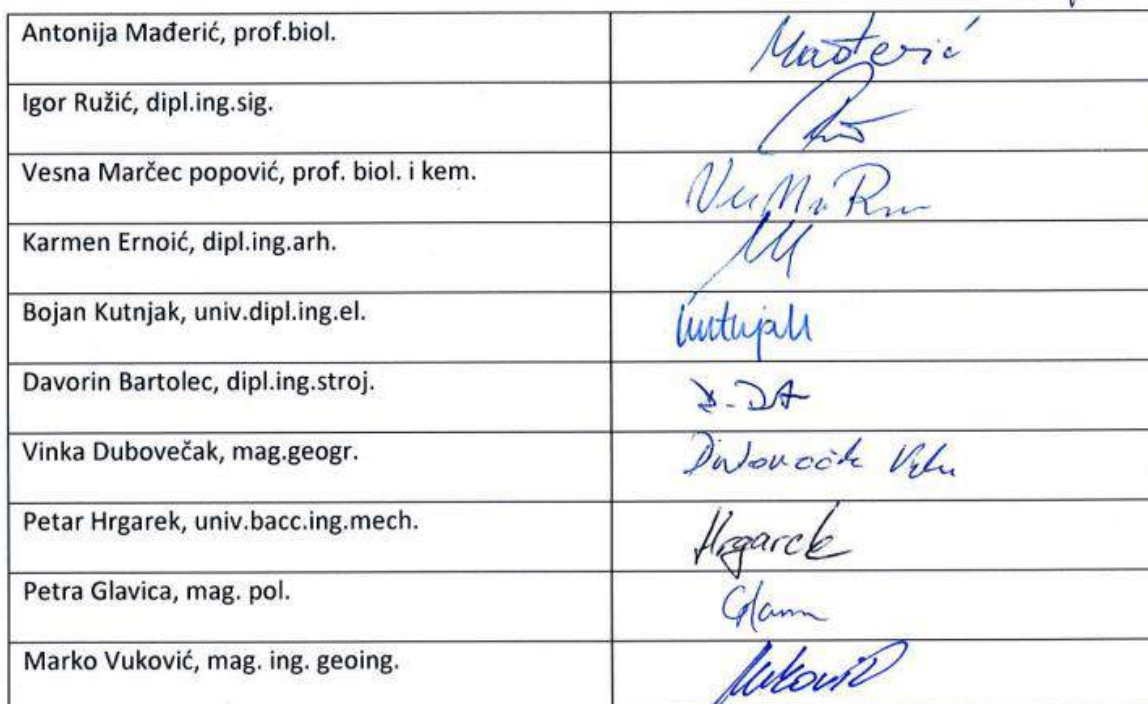 Antonija Mađerić, prof.biol.
Mađerić
Igor Ružić, dipl.ing.sig.
Vesna Marčec popović, prof. biol. i kem.
Karmen Ernoić, dipl.ing.arh.
Bojan Kutnjak, univ.dipl.ing.el.
Kutnjak
Davorin Bartolec, dipl.ing.stroj.
Vinka Dubovečak, mag.geogr.
Petar Hrgarek, univ.bacc.ing.mech.
Hrgarek
Petra Glavica, mag. pol.
Marko Vuković, mag. ing. geoing.
Vuković